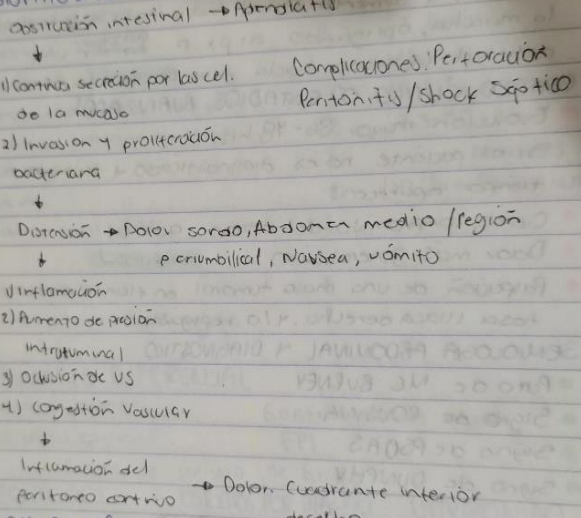 obstrucción intesinal → Apendicitis
↓
1) Continua secreción por las cel.
de la mucosa
Complicaciones: Perforación
Peritonitis / Shock Séptico
2) Invasion y proliferación
bacteriana
↓
Distensión → Dolor sordo, Abdomen medio / región
↓ periumbilical, Nausea, vómito
1) inflamación
2) Aumento de presión
intraluminal
3) Oclusión de VS
4) Congestión vascular
↓
Inflamación del
peritoneo → Dolor, Cuadrante inferior
derecho